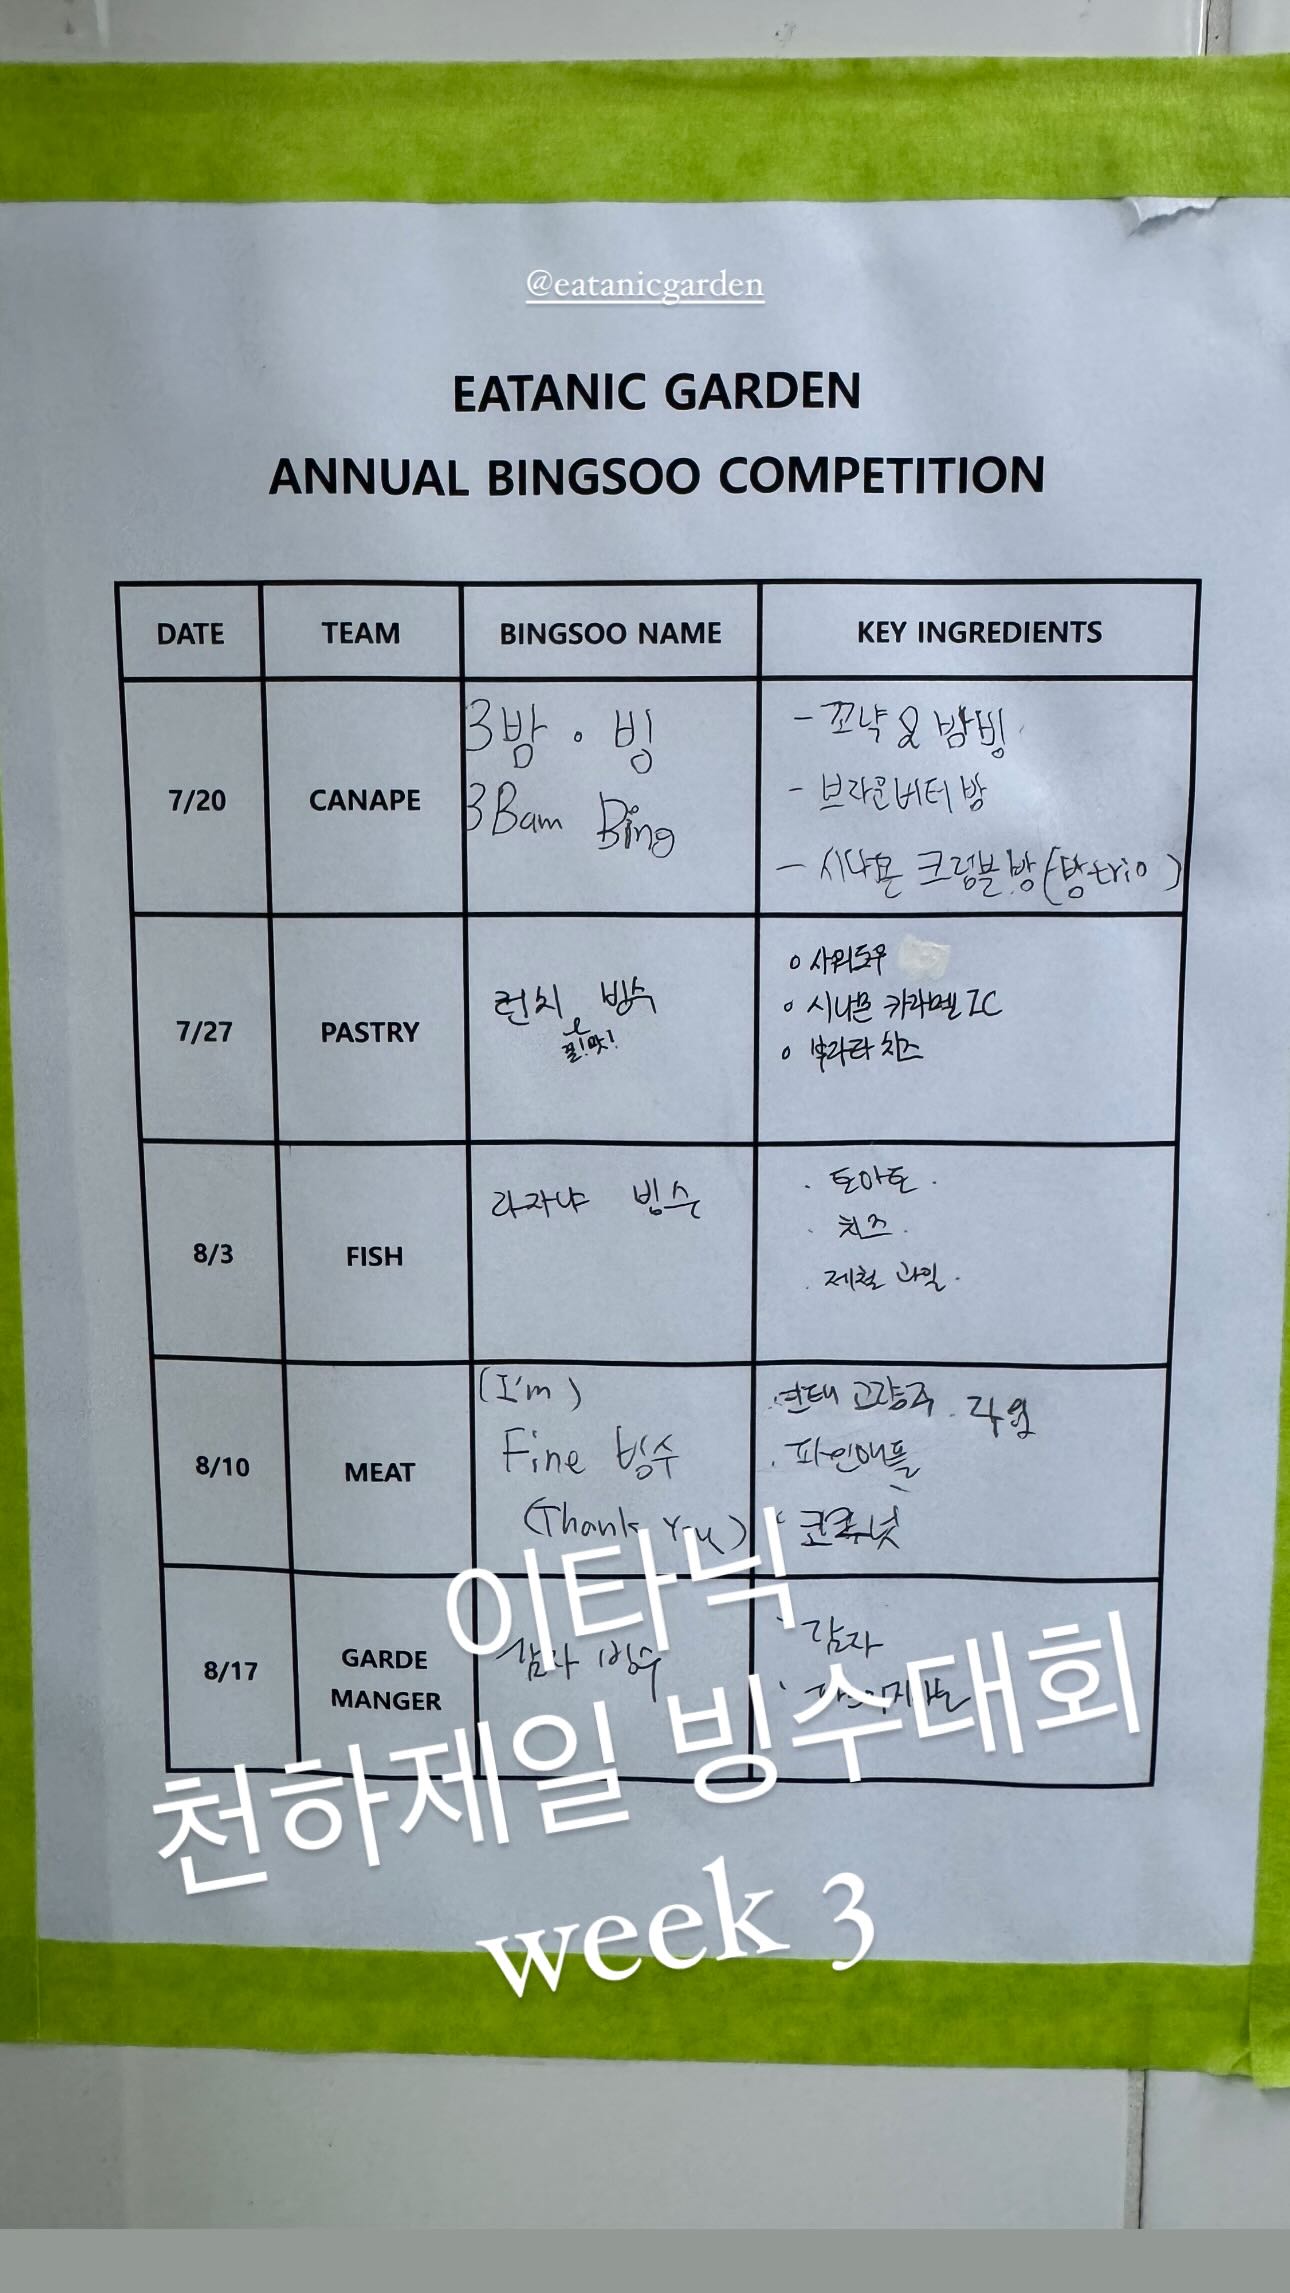 @eatanicgarden
EATANIC GARDEN
ANNUAL BINGSOO COMPETITION
DATE TEAM BINGSOO NAME KEY INGREDIENTS
7/20 CANAPE
3밤 · 빙
3Bam Bing
- 꼬냑 & 밤빙
- 브라운버터 밤
- 시나몬 크럼블 밤 (밤trio)
7/27 PASTRY
런치 빙수
꿀!맛!
사워도우
시나몬 카라멜 IC
부라타 치즈
8/3 FISH
라자냐 빙수
· 토마토 ·
· 치즈 ·
· 제철 과일 ·
8/10 MEAT
(I'm)
Fine 빙수
(Thank You)
· 연태 고량주 · 라임
· 파인애플
코코넛
8/17 GARDE MANGER
감자 빙수
감자
이타닉
천하제일 빙수대회
week 3